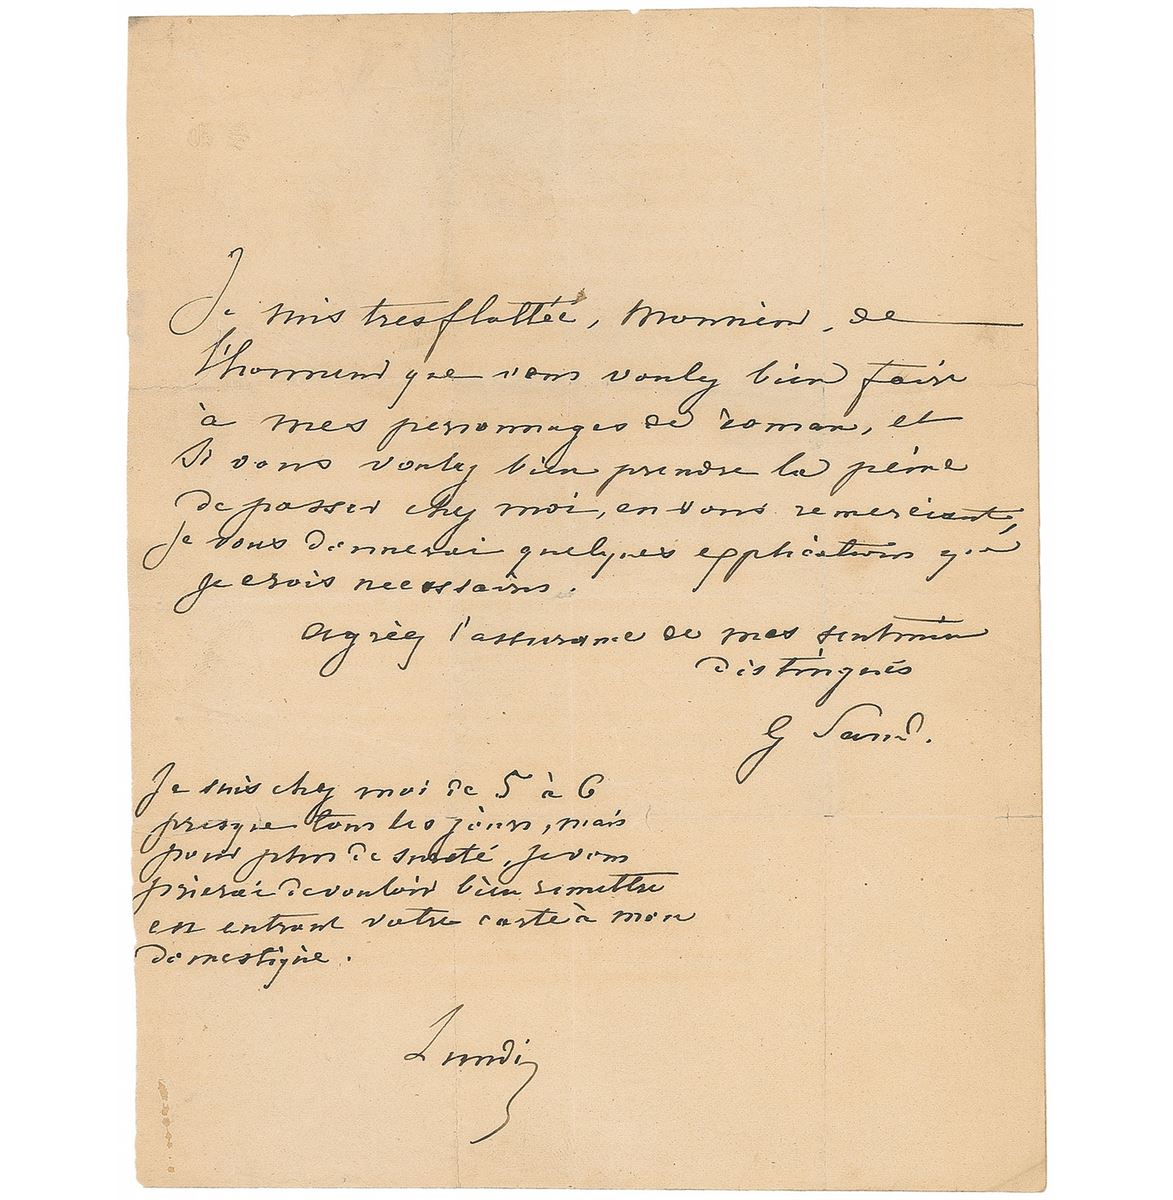 Je suis tres flattée, Monsieur, de
l'honneur que vous voulez bien faire
à mes personnages de roman, et
Si vous voulez bien prendre la peine
de passer chez moi, en vous remerciant,
je vous donnerai quelques explications que
je crois necessaires.
Agréez l'assurance de mes sentimens
distingués
G Sand.
Je suis chez moi de 5 à 6
presque tous les jours, mais
pour plus de sureté, je vous
prierai de vouloir bien remettre
en entrant votre carte à mon
domestique.
Lundi